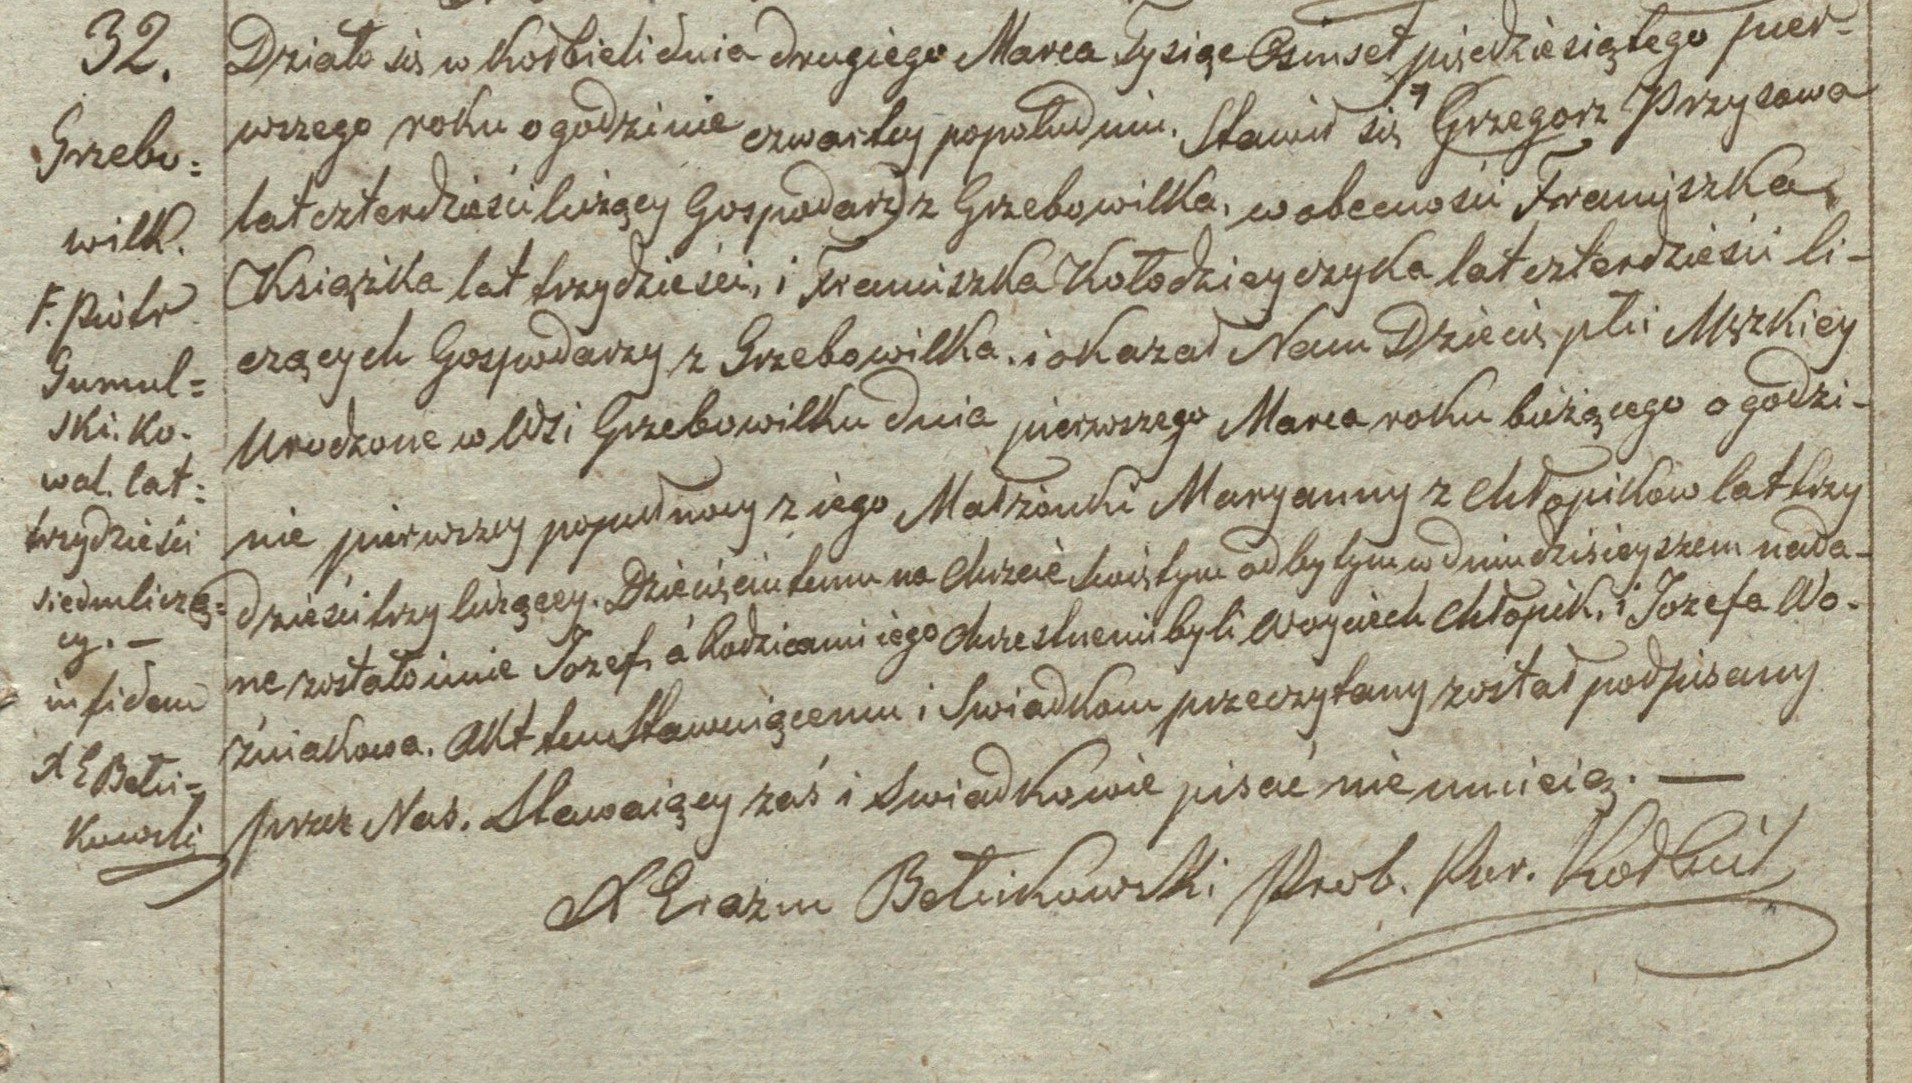 32.
Grzebo=
wilk.
F. Piotr
Gumul=
ski. ko.
wal. lat=
trzydzieści
siedmliczą=
cy. —
in fidem
X E Bełni=
kowski
Działo się w Kołbieli dnia drugiego Marca Tysiąc Osmset pięćdziesiątego pier-
wszego roku o godzinie czwartey popołudniu. Stawił się Grzegorz Przysowa
lat czterdzieści liczący Gospodarz z Grzebowilka, w obecności Franciszka
Książka lat trzydzieści, i Franciszka Kołodzieyczyka lat czterdzieści li-
czących Gospodarzy z Grzebowilka. i okazał Nam Dziecię płci Męzkiey
Urodzone w Wsi Grzebowilku dnia pierwszego Marca roku bieżącego o godzi-
nie pierwszey popołnocy z iego Małżonki Maryanny z Chłopików lat trzy
dzieści trzy liczącey. Dziecięciu temu na Chrzcie Świętym odbytym w dniu dzisieyszem nada-
ne zostało imie Jozef, á Rodzicami iego Chrzestnemi byli Woyciech Chłopik, i Jozefa Wo-
źniakowa. Akt ten Stawaiącemu i Swiadkom przeczytany został podpisany
przez Nas. Stawaiący zaś i Swiadkowie pisać nie umieią. —
X Erazm Bełnikowski Prob. Par. Kołbiel